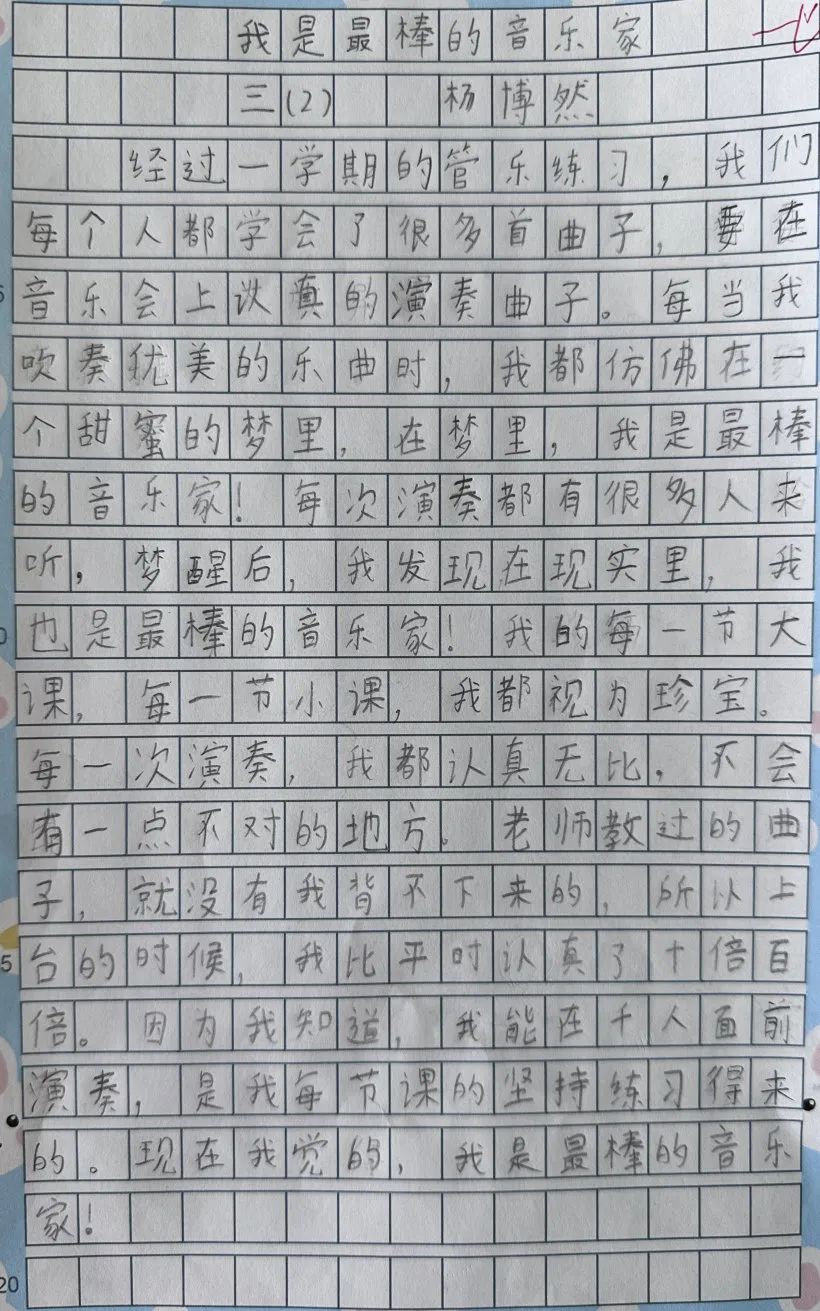 我是最棒的音乐家
三(2) 杨博然
经过一学期的管乐练习，我们
每个人都学会了很多首曲子，要在
音乐会上认真的演奏曲子。每当我
吹奏犹美的乐曲时，我都仿佛在一
个甜蜜的梦里，在梦里，我是最棒
的音乐家！每次演奏都有很多人来
听，梦醒后，我发现在现实里，我
也是最棒的音乐家！我的每一节大
课，每一节小课，我都视为珍宝。
每一次演奏，我都认真无比，不会
有一点不对的地方。老师教过的曲
子，就没有我背不下来的，所以上
台的时候，我比平时认真了十倍百
倍。因为我知道，我能在千人面前
演奏，是我每节课的坚持练习得来
的。现在我觉的，我是最棒的音乐
家！
20